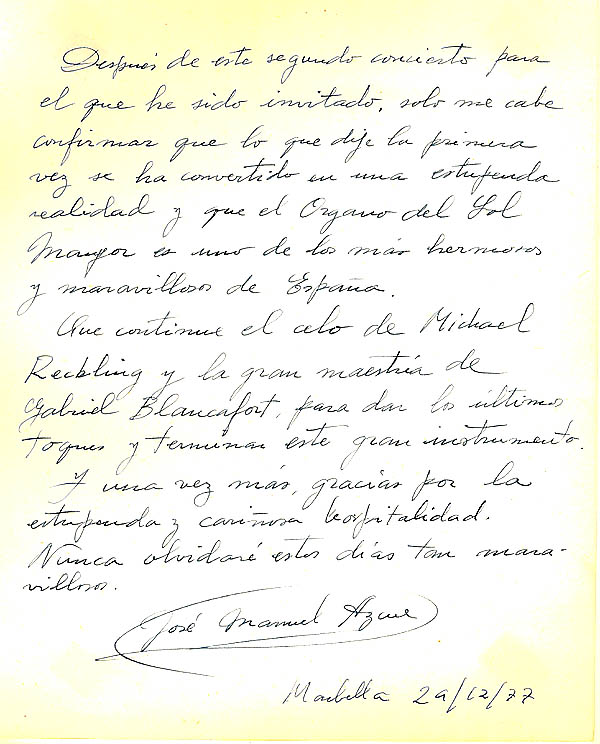 Después de este segundo concierto para
el que he sido invitado, solo me cabe
confirmar que lo que dije la primera
vez se ha convertido en una estupenda
realidad y que el Organo del Sol
Mayor es uno de los más hermosos
y maravillosos de España.
Que continue el celo de Michael
Reckling y la gran maestría de
Gabriel Blancafort, para dar los últimos
toques y terminar este gran instrumento.
Y una vez más, gracias por la
estupenda y cariñosa hospitalidad.
Nunca olvidaré estos días tan mara-
villosos.
José Manuel Azcue
Marbella 29/12/77